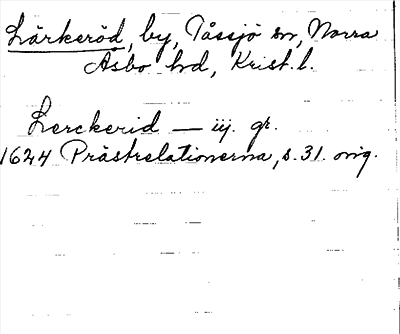 Lärkeröd, by, Tåssjö sn, Norra
Åsbo hd, Krist. l.
Lerckerid — iij. gr.
1624 Prästrelationerna, s. 31. orig.